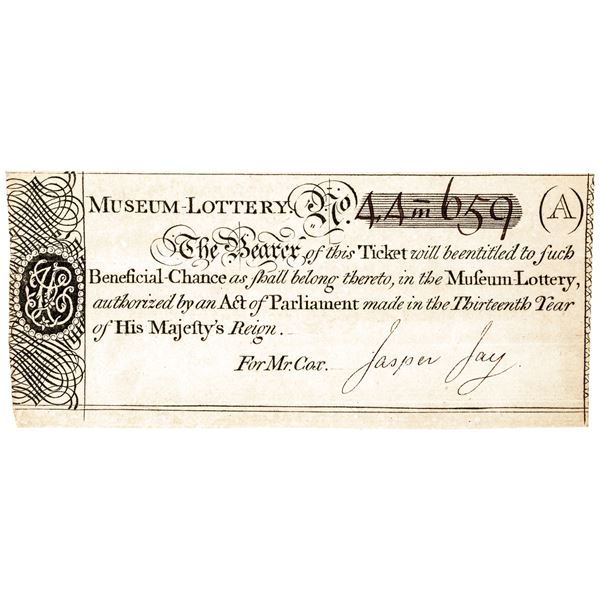 MUSEUM-LOTTERY. No. 44m659 (A)
The Bearer of this Ticket will be entitled to ſuch
Beneficial-Chance as ſhall belong thereto, in the Muſeum-Lottery,
authorized by an Act of Parliament made in the Thirteenth Year
of His Majeſty's Reign.
For Mr. Cox. Jasper Jay.